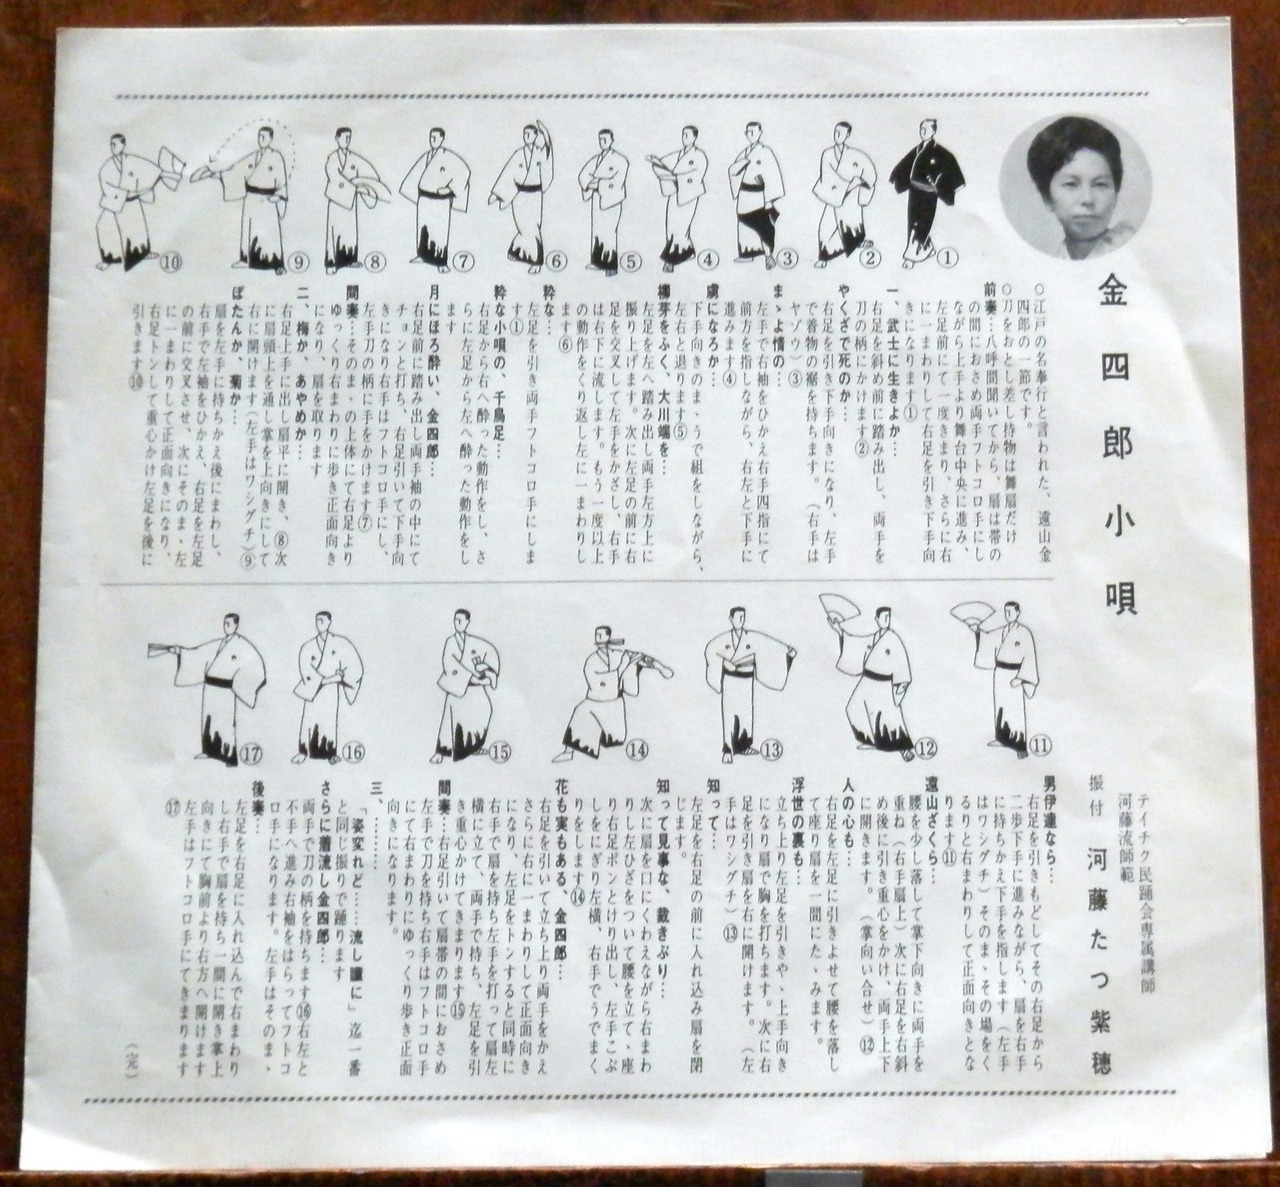 金四郎小唄
テイチク民踊会専属講師
河藤流師範
振付 河藤たつ紫穂
①
②
③
④
⑤
⑥
⑦
⑧
⑨
⑩
○江戸の名奉行と言われた、遠山金
四郎の一節です。
○刀をおとし差し持物は舞扇だけ
前奏…八呼間聞いてから、扇は帯の
の間におさめ両手フトコロ手にし
ながら上手より舞台中央に進み、
左足前にて一度きまり、さらに右
に一まわりして右足を引き下手向
きになります①
一、武士に生きよか…
右足を斜め前に踏み出し、両手を
刀の柄にかけます②
やくざで死のか…
右足を引き下手向きになり、左手
で着物の裾を持ちます。(右手は
ヤゾウ)③
まゝよ情の…
左手で右袖をひかえ右手四指にて
前方を指しながら、右左と下手に
進みます④
虜になろか…
下手向きのまゝうで組をしながら、
左右と退ります⑤
柳芽をふく、大川端を…
左足を左へ踏み出し両手左方上に
振り上げます。次に左足の前に右
足を交叉して左手をかざし、右手
は右下に流します。もう一度以上
の動作をくり返し左に一まわりし
ます⑥
粋な…
左足を引き両手フトコロ手にしま
す①
粋な小唄の、千鳥足…
右足から右へ酔った動作をし、さ
らに左足から左へ酔った動作をし
ます
月にほろ酔い、金四郎…
右足前に踏み出し両手袖の中にて
チョンと打ち、右足引いて下手向
きになり右手はフトコロ手にし、
左手刀の柄に手をかけます⑦
間奏…そのまゝの上体にて右足より
ゆっくり右まわりに歩き正面向き
になり、扇を取ります
二、梅か、あやめか…
右足上手に出し扇平に開き、⑧次
に扇頭上を通し掌を上向きにして
右に開けます(左手はワシグチ)⑨
ぼたんか、菊か…
扇を左手に持ちかえ後にまわし、
右手で左袖をひかえ、右足を左足
の前に交叉させ、次にそのまゝ左
に一まわりして正面向きになり、
右足トンして重心かけ左足を後に
引きます⑩
⑪
⑫
⑬
⑭
⑮
⑯
⑰
男伊達なら…
右足を引きもどしてその右足から
二歩下手に進みながら、扇を右手
に持ちかえ下手を指します(左手
はワシグチ)そのまゝその場をく
るりと右まわりして正面向きとな
ります⑪
遠山ざくら…
腰を少し落して掌下向きに両手を
重ね(右手扇上)次に右足を右斜
め後に引き重心をかけ、両手上下
に開きます。(掌向い合せ)⑫
人の心も…
右足を左足に引きよせて腰を落し
て座り扇を一間にたゝみます。
浮世の裏も…
立ち上り左足を引きやゝ上手向き
になり扇で胸を打ちます。次に右
足を引き扇を右に開けます。(左
手はワシグチ)⑬
知って…
左足を右足の前に入れ込み扇を閉
じます。
知って見事な、裁きぶり…
次に扇を口にくわえながら右まわ
りし左ひざをついて腰を立て、座
り右足ポンとけり出し、左手こぶ
しをにぎり左横、右手でうでまく
りをします⑭
花も実もある、金四郎…
右足を引いて立ち上り両手をかえ
さらに右に一まわりして正面向き
になり、左足をトンすると同時に
右手で扇を持ち左手を打って扇左
横に立て、両手で持ち、左足を引
き重心かけてきまります⑮
間奏…右足引いて扇帯の間におさめ
左手で刀を持ち右手はフトコロ手
にて右まわりにゆっくり歩き正面
向きになります。
三、…………
「姿変れど……流し瞳に」迄一番
と同じ振りで踊ります
さらに着流し金四郎…
両手で刀の柄を持ちます⑯右左と
下手へ進み右袖をはらってフトコ
ロ手になります。左手はそのまゝ
後奏…
左足を右足に入れ込んで右まわり
し右手で扇を持ち一間に開き掌上
向きにて胸前より右方へ開けます
左手はフトコロ手にてきまります
⑰
(完)